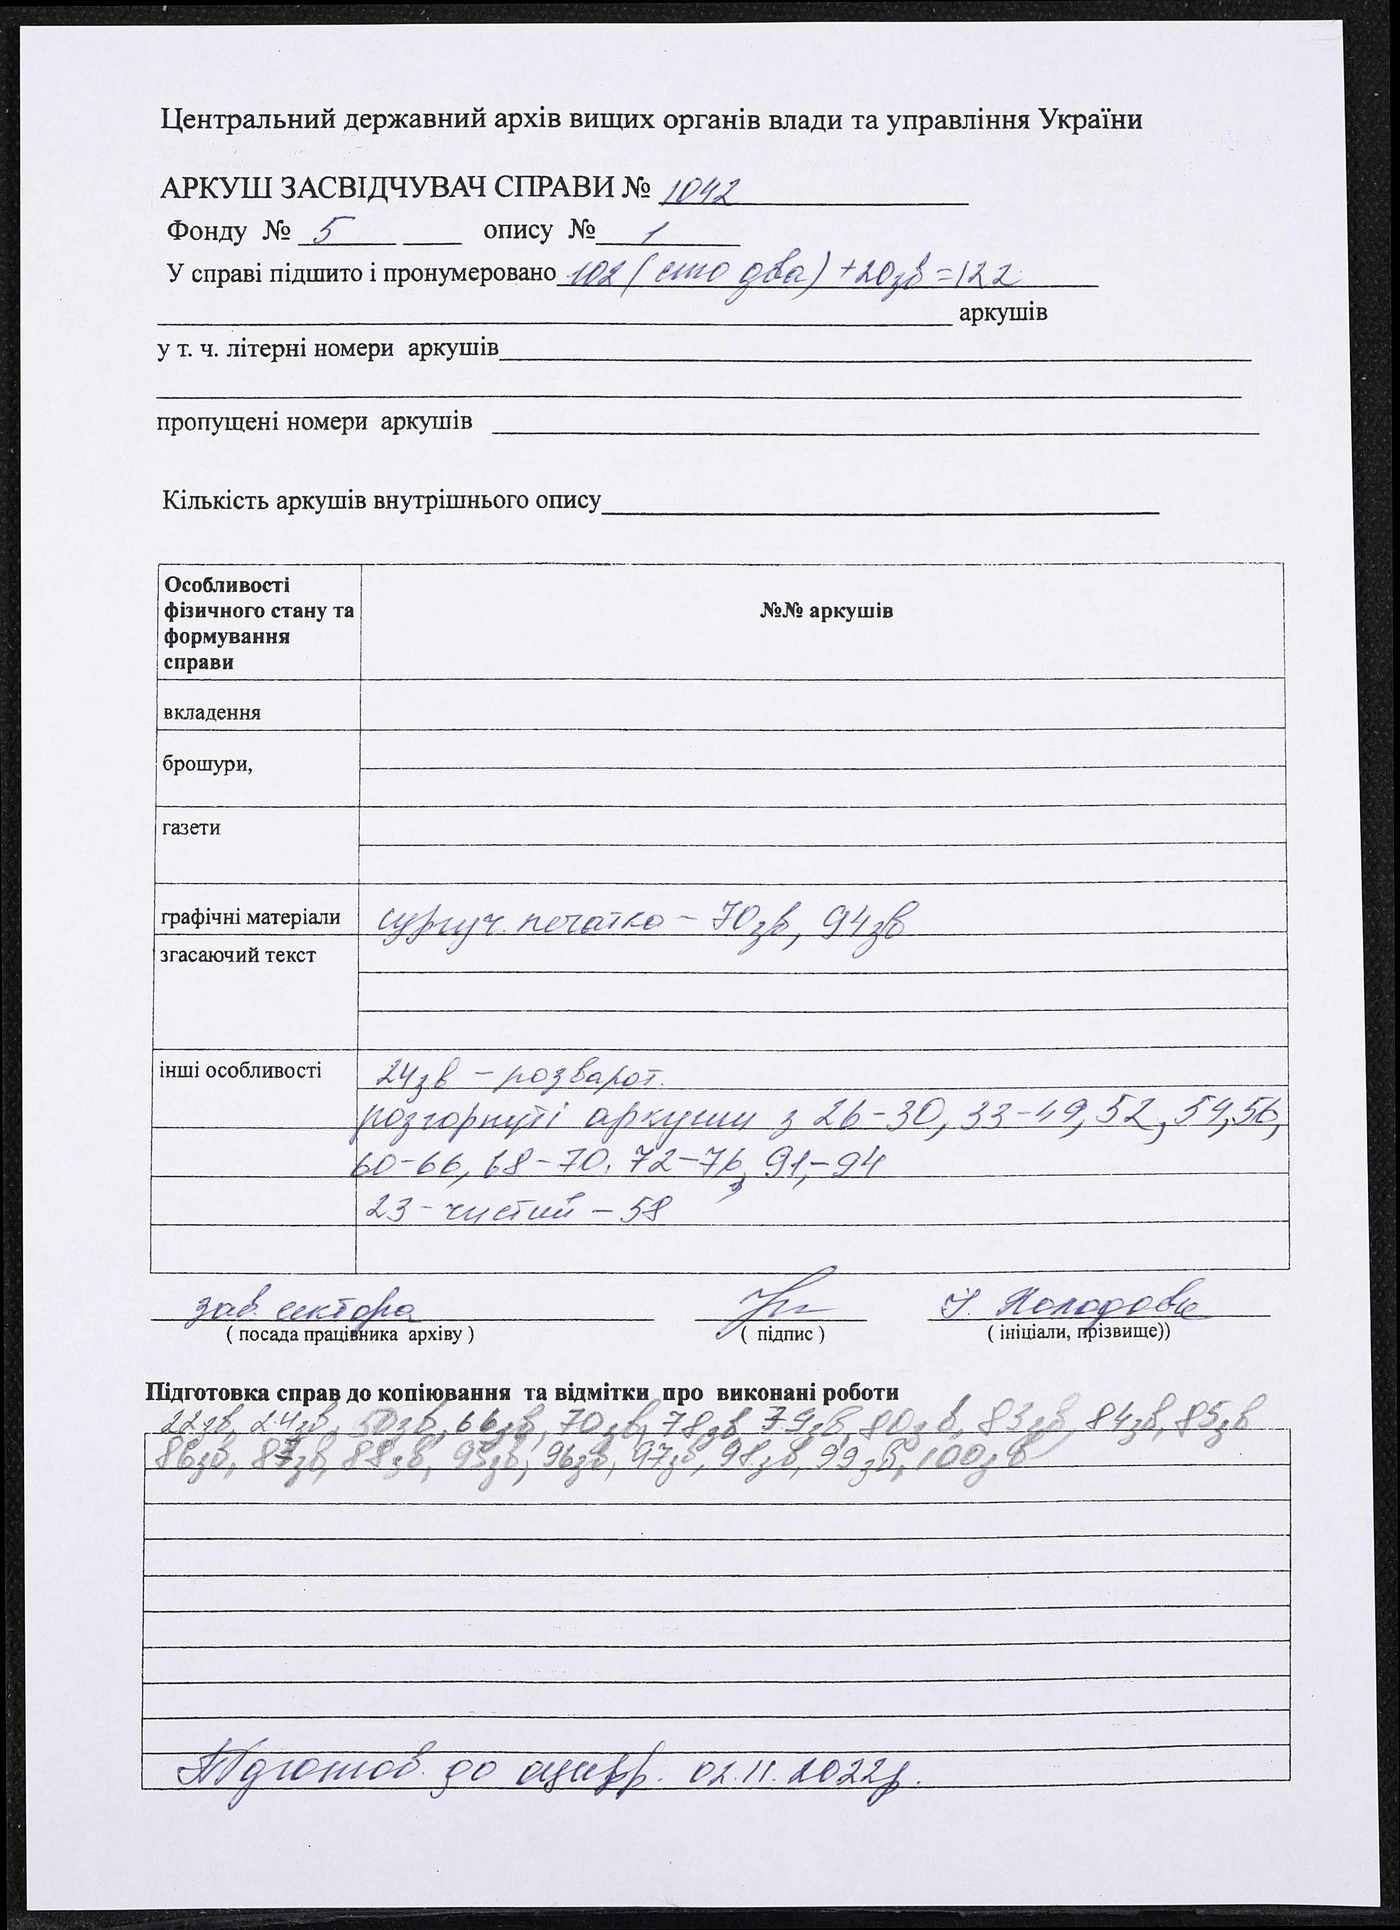 Центральний державний архів вищих органів влади та управління України
АРКУШ ЗАСВІДЧУВАЧ СПРАВИ № 1042
Фонду № 5 опису № 1
У справі підшито і пронумеровано 102 (сто два) + 20зв = 122
аркушів
у т. ч. літерні номери аркушів
пропущені номери аркушів
Кількість аркушів внутрішнього опису
Особливості
фізичного стану та
формування
справи
№№ аркушів
вкладення
брошури,
газети
графічні матеріали сургуч. печатка – 70зв, 94зв
згасаючий текст
інші особливості 24зв – розварот.
розгорнуті аркуши з 26-30, 33-49, 52, 54, 56,
60-66, 68-70. 72-76, 91,-94
23 - чистий – 58
зав. сектора
( посада працівника архіву ) ( підпис ) ( ініціали, прізвище))
Підготовка справ до копіювання та відмітки про виконані роботи
22зв, 24зв, 50зв, 66зв, 70зв, 78зв, 79зв, 80зв, 83зв, 84зв, 85зв
86зв, 87зв, 88зв, 95зв, 96зв, 97зв, 98зв, 99зв, 100зв
Підготов. до оцифр. 02.11.2022р.